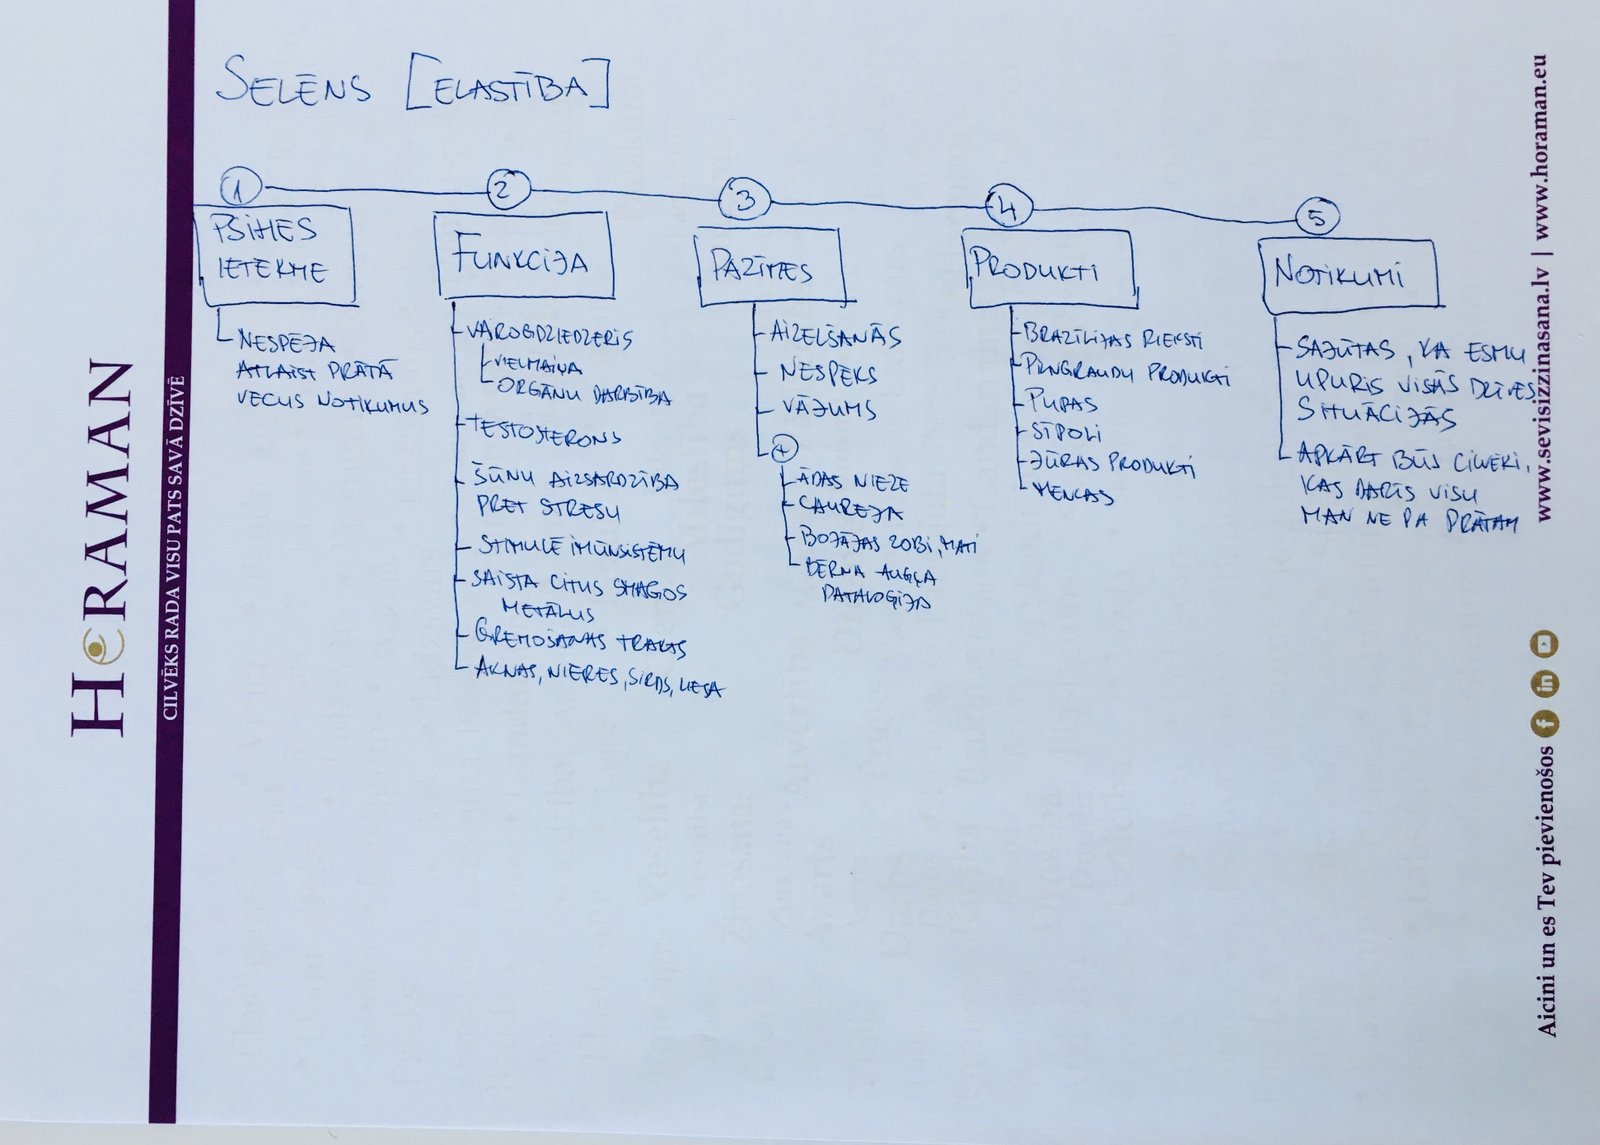 SELĒNS [ELASTĪBA]
1
PSIHES
IETEKME
NESPĒJA
ATLAIST PRĀTĀ
VECUS NOTIKUMUS
2
FUNKCIJA
VAROGDZIEDZERIS
VIELMAIŅA
ORGĀNU DARBĪBA
TESTOSTERONS
ŠŪNU AIZSARDZĪBA
PRET STRESU
STIMULĒ IMŪNSISTĒMU
SAISTA CITUS SMAGOS
METĀLUS
GREMOŠANAS TRAKTS
AKNAS, NIERES, SIRDS, LIESA
3
PAZĪMES
AIZELŠANĀS
NESPĒKS
VĀJUMS
+
ĀDAS NIEZE
CAUREJA
BOJĀJAS ZOBI, MATI
BĒRNA AUGĻA
PATALOĢIJA
4
PRODUKTI
BRAZĪLIJAS RIEKSTI
PILNGRAUDU PRODUKTI
PUPAS
SĪPOLI
JŪRAS PRODUKTI
MENCAS
5
NOTIKUMI
SAJŪTAS, KA ESMU
UPURIS VISĀS DZĪVES
SITUĀCIJĀS
APKĀRT BŪS CILVĒKI,
KAS DARĪS VISU
MAN NE PA PRĀTAM
HORAMAN
CILVĒKS RADA VISU PATS SAVĀ DZĪVĒ
Aicini un es Tev pievienošos f in
www.sevisizzinasana.lv | www.horaman.eu